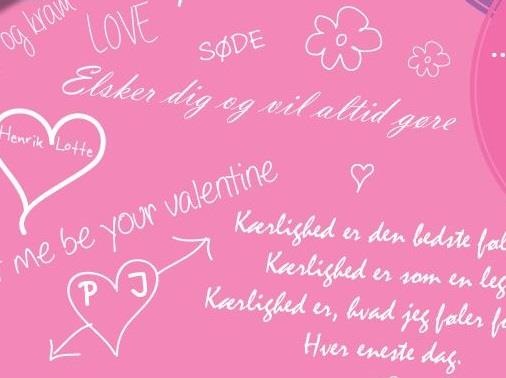 og kram
LOVE
SØDE
Elsker dig og vil altid gøre
Henrik Lotte
me be your valentine
P J
Kærlighed er den bedste
Kærlighed er som en
Kærlighed er, hvad jeg føler
Hver eneste dag.